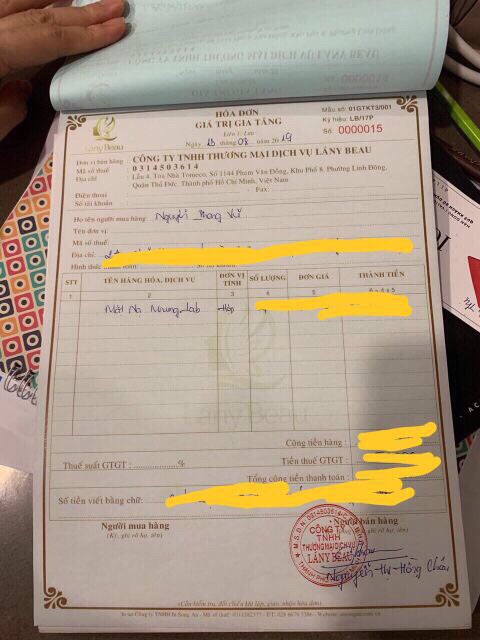 HÓA ĐƠN
GIÁ TRỊ GIA TĂNG
Liên 1: Lưu
Ngày tháng 08 năm 2019
Mẫu số: 01GTKT3/001
Ký hiệu: LB/17P
Số: 0000015
Lány Beau
Đơn vị bán hàng: CÔNG TY TNHH THƯƠNG MẠI DỊCH VỤ LÁNY BEAU
Mã số thuế: 0314503614
Địa chỉ: Lầu 4, Tòa Nhà Toroeco, Số 1144 Phạm Văn Đồng, Khu Phố 8, Phường Linh Đông,
Quận Thủ Đức, Thành phố Hồ Chí Minh, Việt Nam
Điện thoại: Fax:
Số tài khoản:
Họ tên người mua hàng: Nguyễn Phong Vũ
Tên đơn vị:
Mã số thuế:
Địa chỉ:
Hình thức
STT TÊN HÀNG HÓA, DỊCH VỤ ĐƠN VỊ TÍNH SỐ LƯỢNG ĐƠN GIÁ THÀNH TIỀN
1 2 3 4 5 6 = 4 x 5
Mặt Nạ Hộp
Lány Beau
Cộng tiền hàng:
Thuế suất GTGT: %
Tiền thuế GTGT:
Tổng cộng tiền thanh toán:
Số tiền viết bằng chữ:
Người mua hàng
(Ký, ghi rõ họ, tên)
Người bán hàng
M.S.D.N: 0314503614
CÔNG TY
TNHH
THƯƠNG MẠI DỊCH VỤ
LÁNY BEAU
Nguyễn Thị Hồng Châu
(Cần kiểm tra, đối chiếu khi lập, giao, nhận hóa đơn)